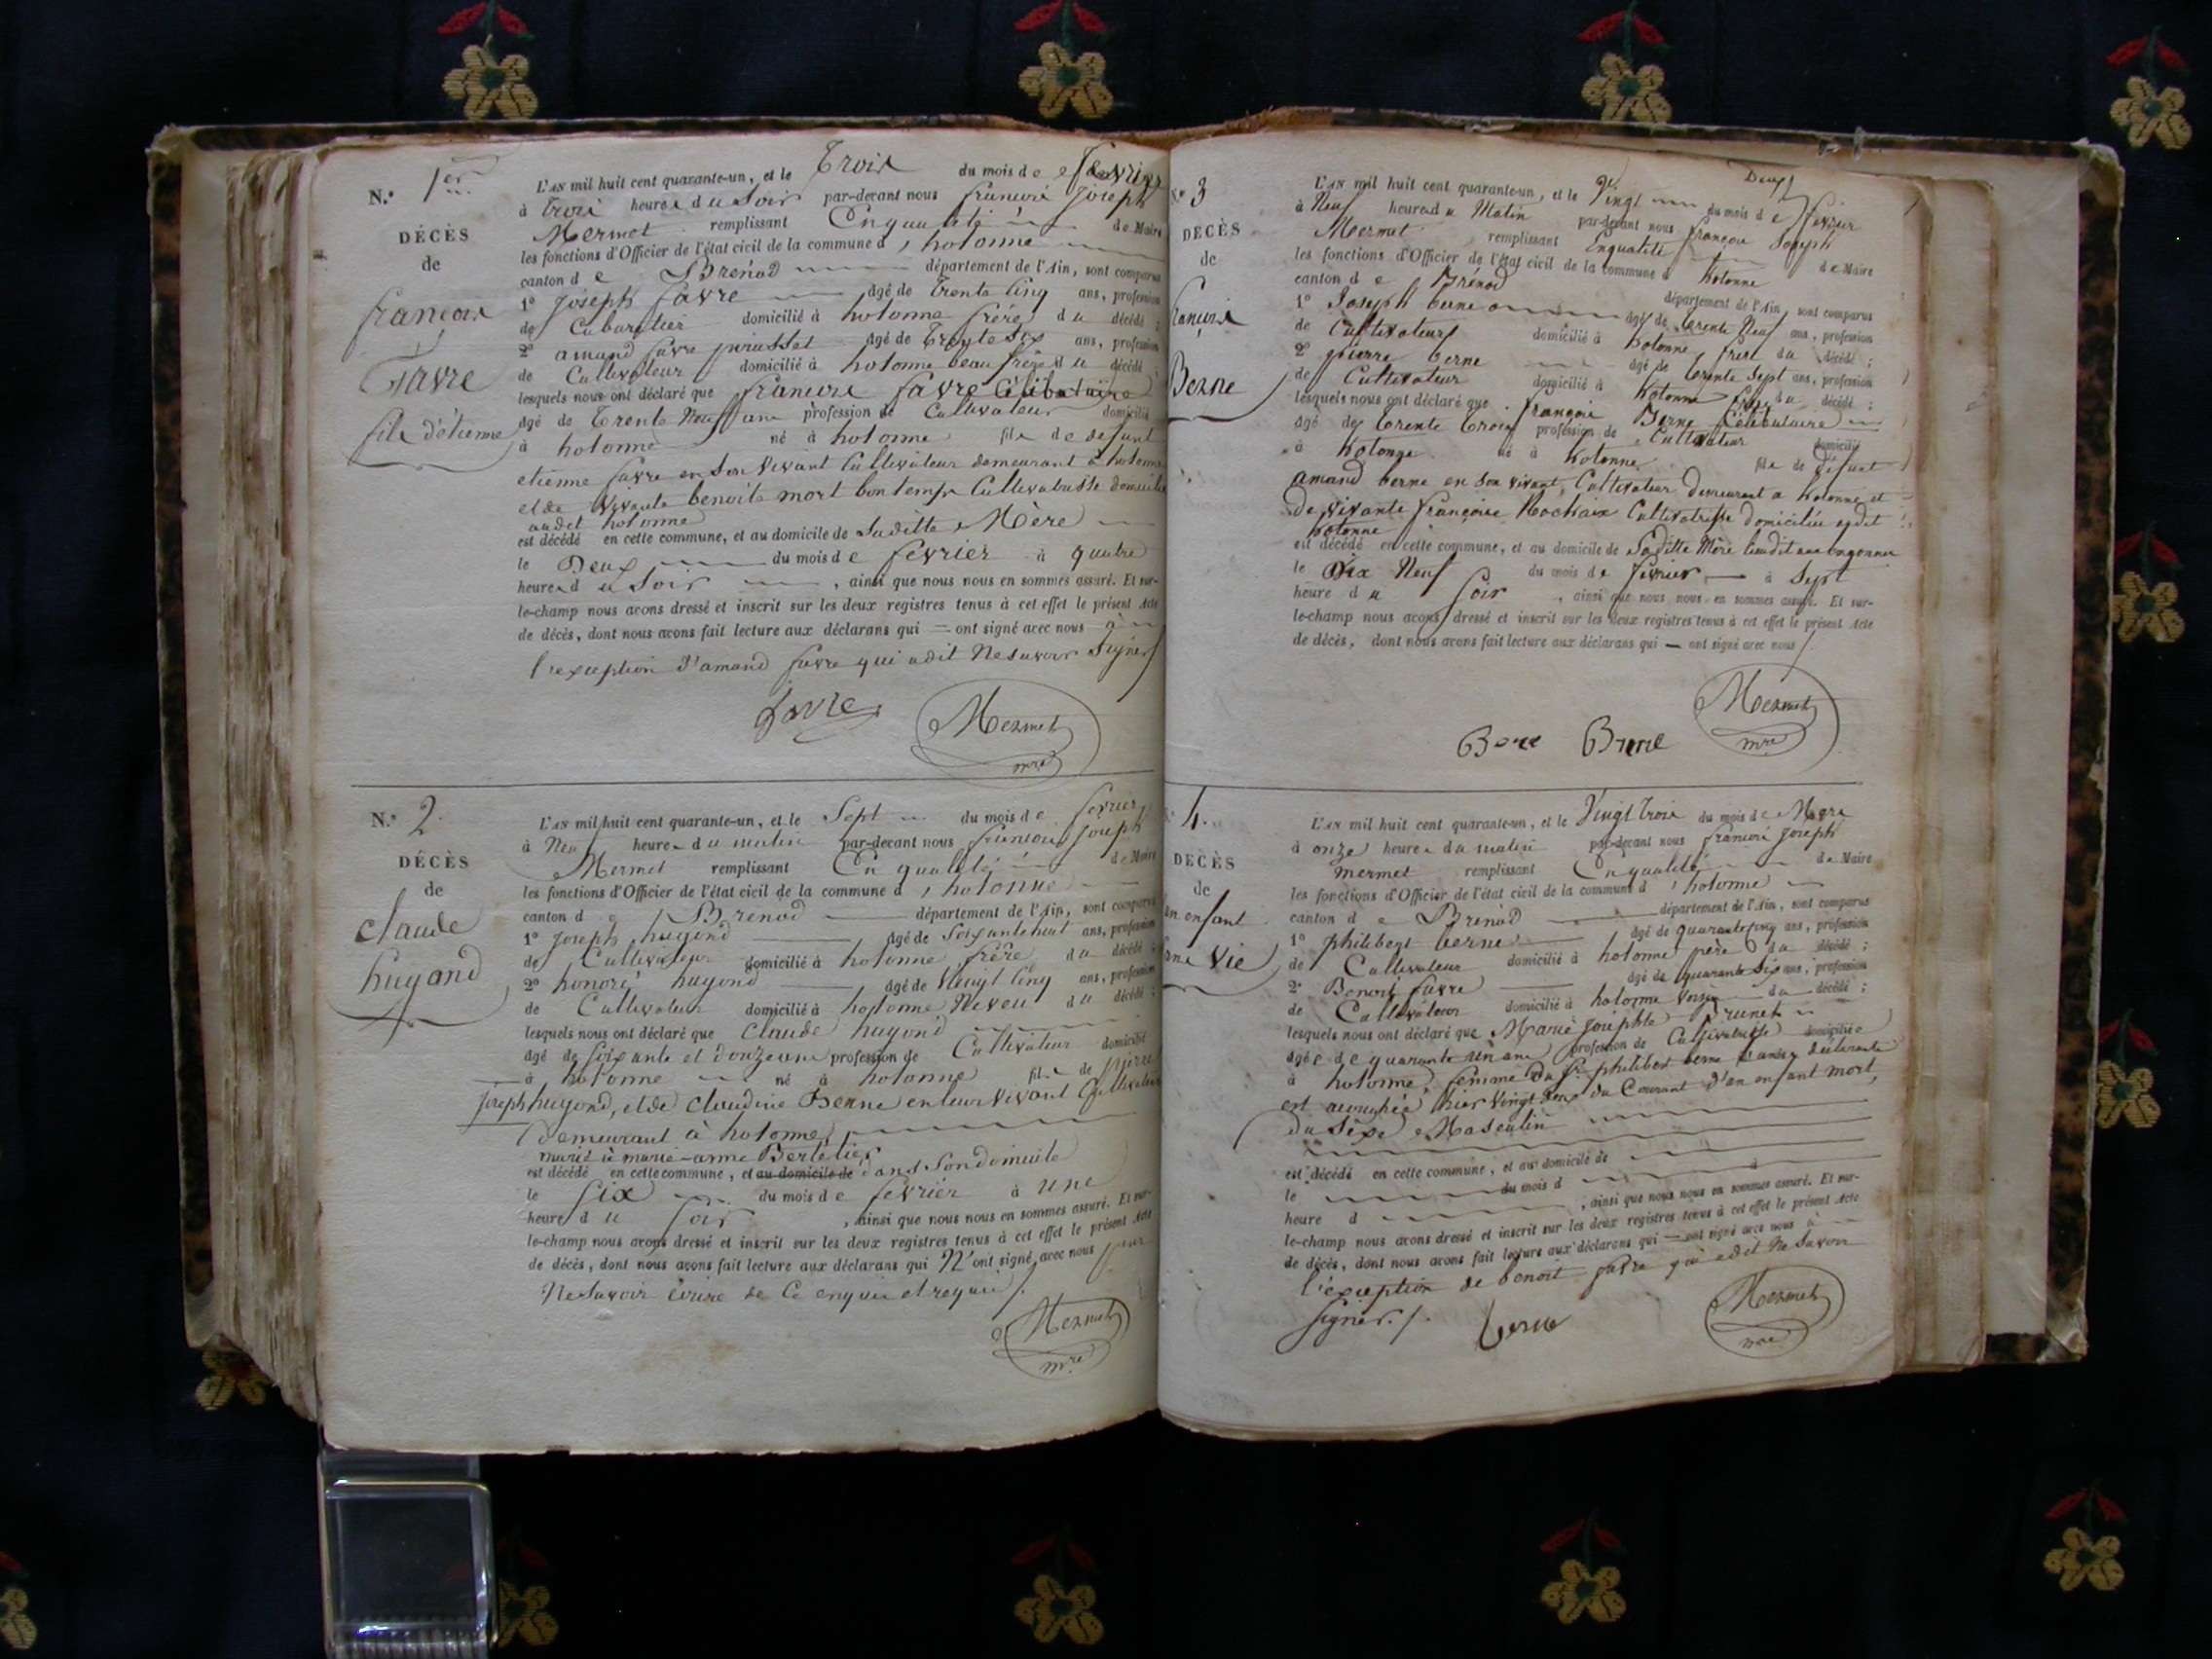 N.° 1er
DÉCÈS
de
françois
Favre
fils d'étienne
L'AN mil huit cent quarante-un, et le Trois du mois de février
à Trois heures du Soir par-devant nous françois Joseph
Mermet remplissant En qualité de Maire
les fonctions d'Officier de l'état civil de la commune d'hotonne
canton de Brénod département de l'Ain, sont comparus
1° Joseph favre âgé de Trente Cinq ans, profession
de Cabaretier domicilié à hotonne frère du décédé ;
2° amand favre âgé de Trente Six ans, profession
de Cultivateur domicilié à hotonne beau frère du décédé
lesquels nous ont déclaré que françois favre Célibataire
âgé de Trente Neuf ans profession de Cultivateur domicilié
à hotonne né à hotonne fils de defunt
etienne favre en Son Vivant Cultivateur demeurant à hotonne
et de Vivante benoite mort bontemps Cultivatrisse domicilié
audit hotonne
est décédé en cette commune, et au domicile de Saditte Mère
le Deux du mois de fevrier à quatre
heures du Soir, ainsi que nous nous en sommes assuré. Et sur-
le-champ nous avons dressé et inscrit sur les deux registres tenus à cet effet le présent Acte
de décès, dont nous avons fait lecture aux déclarans qui ont signé avec nous à
l'exception d'amand favre qui a dit Ne Savoir Signer
favre Mermet
mre
N.° 2
DÉCÈS
de
Claude
hugond
L'AN mil huit cent quarante-un, et le Sept du mois de fevrier
à Neuf heures du matin par-devant nous francois Joseph
Mermet remplissant En qualité de Maire
les fonctions d'Officier de l'état civil de la commune d'hotonne
canton de Brenod département de l'Ain, sont comparus
1° Joseph hugond âgé de Soixante huit ans, profession
de Cultivateur domicilié à hotonne frère du décédé ;
2° honoré hugond âgé de Vaingt Cinq ans, profession
de Cultivateur domicilié à hotonne Neveu du décédé ;
lesquels nous ont déclaré que Claude hugond
âgé de Soixante et douze ans profession de Cultivateur domicilié
à hotonne né à hotonne fils de
joseph hugond, et de Claudine Berne en leur vivant Cultivateur
Demeurant à hotonne,
marié à marie-anne Bertelier
est décédé en cette commune, et au domicile de dans Son domicile
le Six du mois de fevrier à une
heure du Soir, ainsi que nous nous en sommes assuré. Et sur-
le-champ nous avons dressé et inscrit sur les deux registres tenus à cet effet le présent Acte
de décès, dont nous avons fait lecture aux déclarans qui N'ont signé avec nous pour
Ne Savoir écrire de Ce enquis et requis
Mermet
mre
N° 3
DÉCÈS
de
françois
Berne
L'AN mil huit cent quarante-un, et le Vingt Deux du mois de février
à Neuf heures du Matin par-devant nous françois Joseph
Mermet remplissant En qualité de Maire
les fonctions d'Officier de l'état civil de la commune d hotonne
canton de Brénod département de l'Ain, sont comparus
1° Joseph berne âgé de trente Neuf ans, profession
de Cultivateur domicilié à hotonne frère du décédé ;
2° pierre berne âgé de trente Sept ans, profession
de Cultivateur domicilié à hotonne frère du décédé ;
lesquels nous ont déclaré que françois Berne Célibataire
âgé de trente trois profession de Cultivateur domicilié
à hotonne né à hotonne fils de défunt
amand berne en son vivant, Cultivateur demeurant a hotonne et
de vivante françoise Rochaix Cultivatrisse domiciliée audit
hotonne
est décédé en cette commune, et au domicile de Saditte Mère lieu dit
le Dix Neuf du mois de fevrier à Sept
heure du Soir, ainsi que nous nous en sommes assuré. Et sur-
le-champ nous avons dressé et inscrit sur les deux registres tenus à cet effet le présent Acte
de décès, dont nous avons fait lecture aux déclarans qui ont signé avec nous
Berne Berne Mermet
mre
4.
DÉCÈS
de
un enfant
sans Vie
L'AN mil huit cent quarante-un, et le Vingt Trois du mois de Mars
à onze heures du matin par-devant nous françois Joseph
mermet remplissant En qualité de Maire
les fonctions d'Officier de l'état civil de la commune d'hotonne
canton de Brenod département de l'Ain, sont comparus
1° philibert berne âgé de quarante cinq ans, profession
de Cultivateur domicilié à hotonne père du décédé ;
2° Benoit favre âgé de quarante Six ans, profession
de Cultivateur domicilié à hotonne Voisin du décédé ;
lesquels nous ont déclaré que Marie Josephte Brunet
âgée de quarante un ans profession de Cultivatrisse domiciliée
à hotonne, femme du Sr philibert berne
est acouchée hier Vingt deux du Courant d'un enfant mort,
du Sèxe Masculin
est décédé en cette commune, et au domicile de
le du mois d à
heure d, ainsi que nous nous en sommes assuré. Et sur-
le-champ nous avons dressé et inscrit sur les deux registres tenus à cet effet le présent Acte
de décès, dont nous avons fait lecture aux déclarans qui ont signé avec nous à
l'éxception de benoit favre qui a dit Ne Savoir
Signer.
berne Mermet
mre